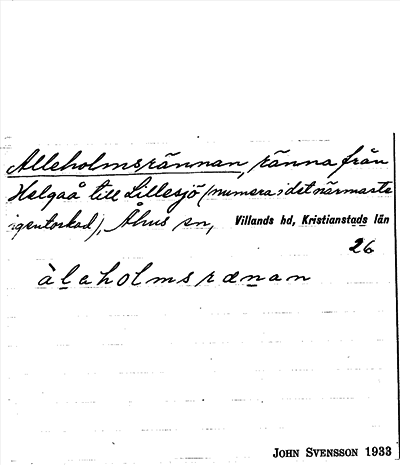 Alleholmsrännan, ränna från
Helgaå till Lillesjö (numera i det närmaste
igentorkad), Åhus sn, Villands hd, Kristianstads län
26
àlaholmsrænan
JOHN SVENSSON 1933